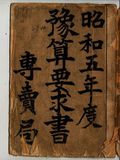 昭和五年度
豫算要求書
專賣局